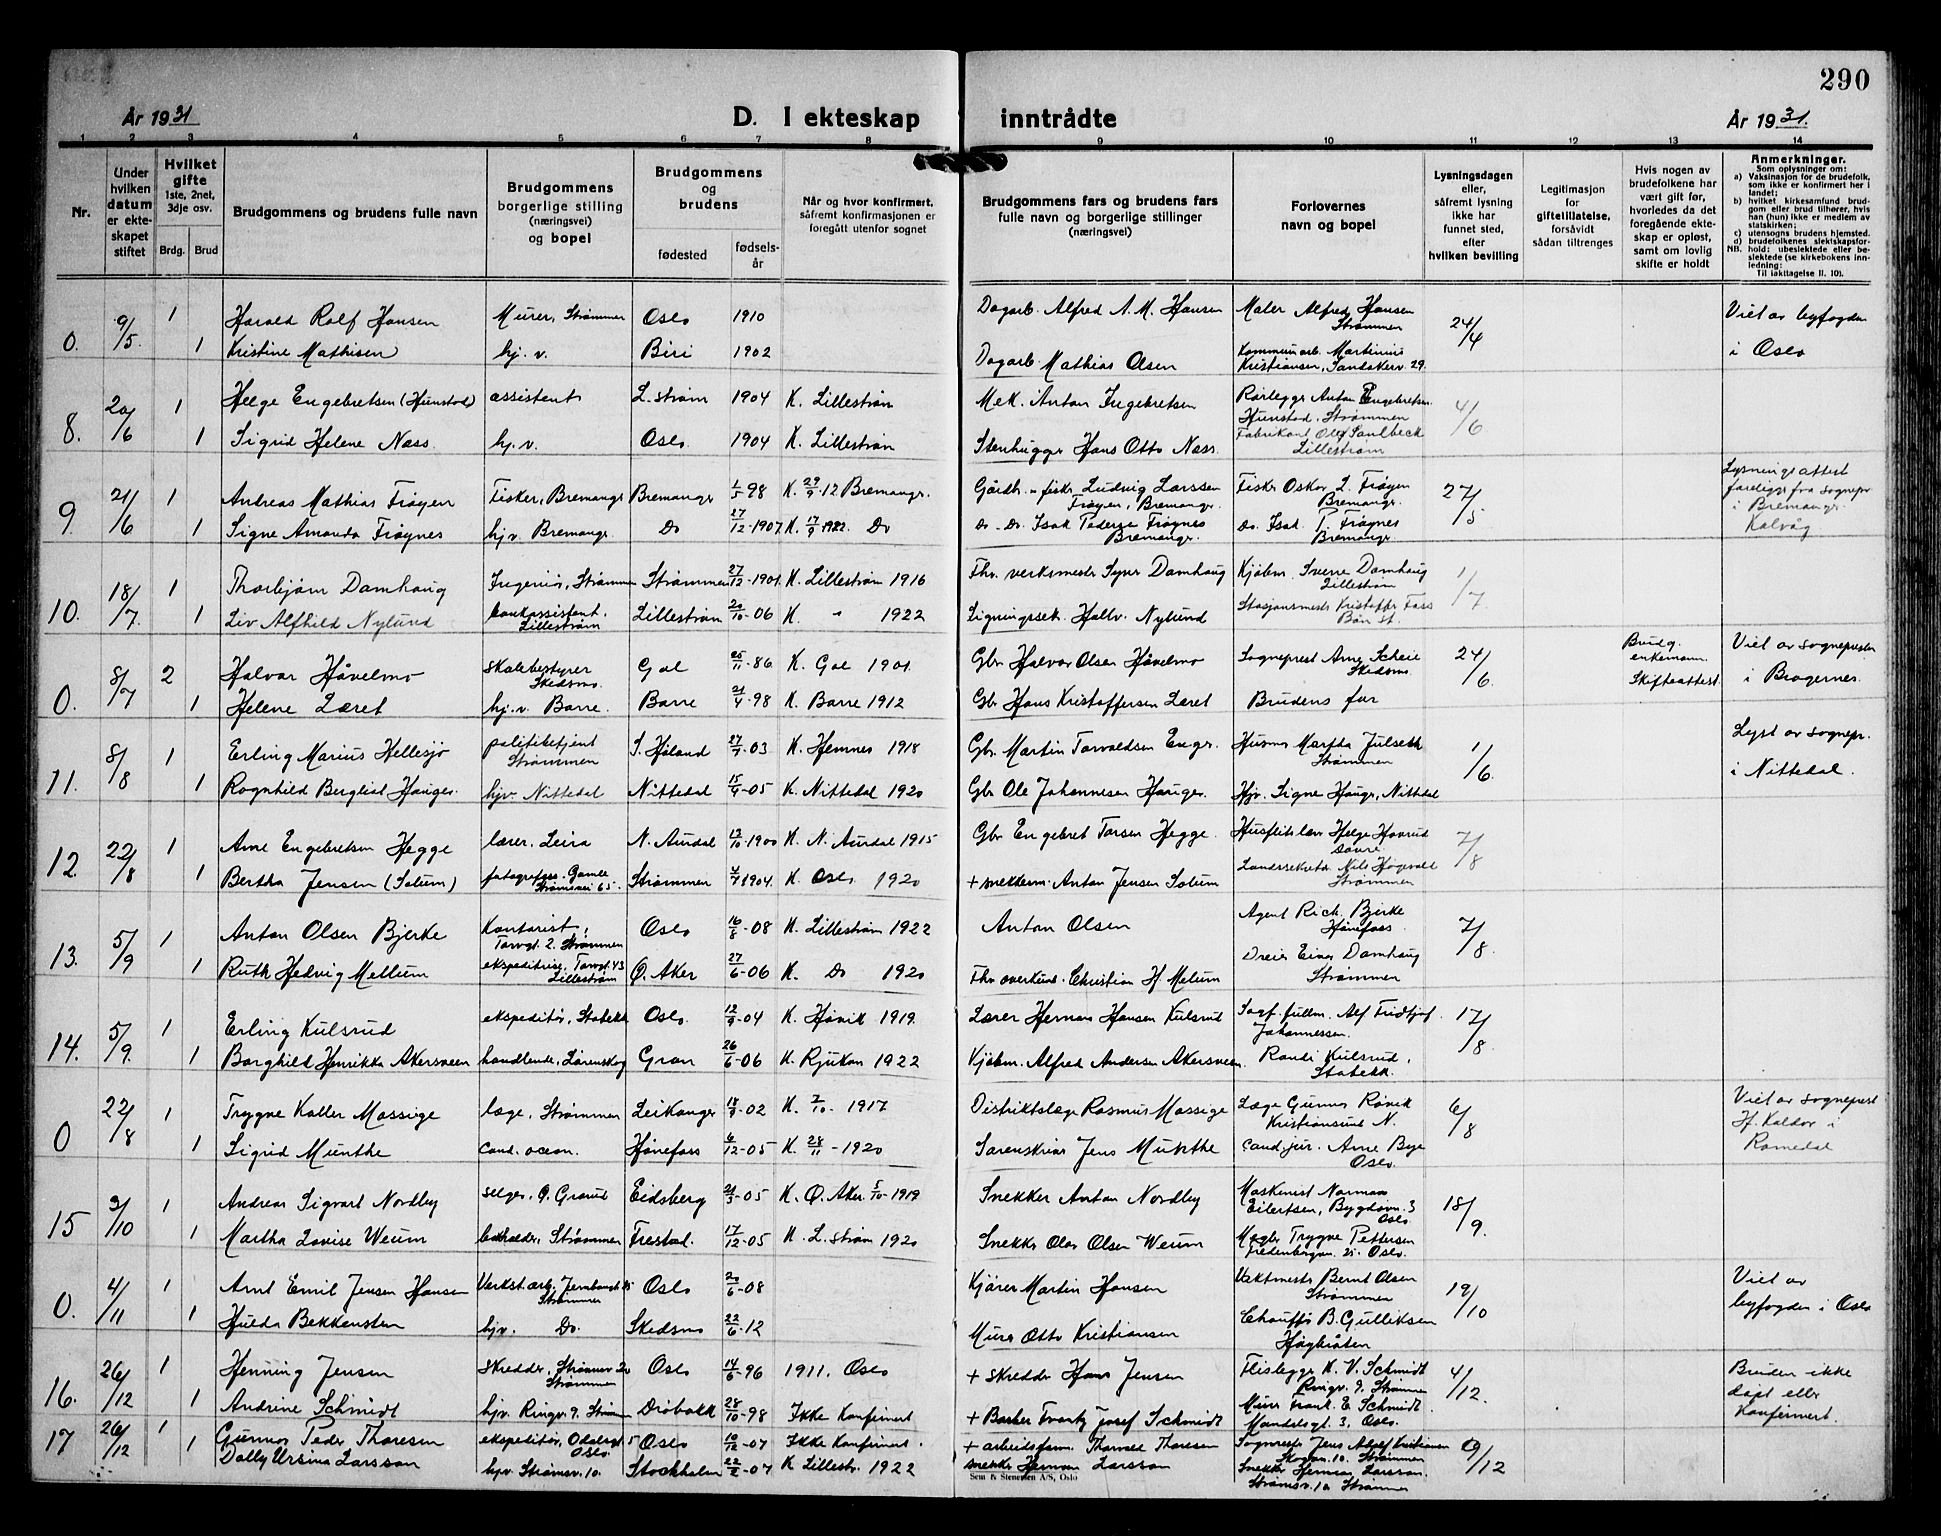 290
År 1931
D. I ekteskap inntrådte
År 1931.
1 2 3 4 5 6 7 8 9 10 11 12 13 14
Nr.
Under hvilken datum er ekteskapet stiftet
Hvilket gifte 1ste, 2net, 3dje osv.
Brdg. Brud
Brudgommens og brudens fulle navn
Brudgommens borgerlige stilling (næringsvei) og bopel
Brudgommens og brudens
fødested
fødselsår
Når og hvor konfirmert, såfremt konfirmasjonen er foregått utenfor sognet
Brudgommens fars og brudens fars fulle navn og borgerlige stillinger (næringsvei)
Forlovernes navn og bopel
Lysningsdagen eller, såfremt lysning ikke har funnet sted, efter hvilken bevilling
Legitimasjon for giftetillatelse, forsåvidt sådan tiltrenges
Hvis nogen av brudefolkene har vært gift før, hvorledes da det foregående ekteskap er opløst, samt om lovlig skifte er holdt
Anmerkninger.
Som oplysninger om:
a) Vaksinasjon for de brudefolk, som ikke er konfirmert her i landet;
b) hvilket kirkesamfund brudgom eller brud tilhører, hvis han (hun) ikke er medlem av statskirken;
c) utensogns brudens hjemsted.
d) brudefolkenes slektskapsforhold: ubeslektede eller beslektede (se kirkebokens innledning:
NB.
Til iakttagelse II. 10).
0. 9/5. 1 Harald Rolf Hansen Murer, Strømmen Oslo 1910 Dagarb. Alfred A. M. Hansen Maler Alfred Hansen Strømmen 24/4 Viet av byfogden
1 Kristine Mathisen hj. v. Biri 1902 Dagarb. Mathias Olsen Kommunearb. Martinius Kristiansen, Sandakerv. 29. i Oslo
8. 20/6 1 Helge Engebretsen (Hunstad) assistent L.strøm 1904 K. Lillestrøm Mek. Anton Ingebretsen Rørlegger Anton Engebretsen Hunstad, Strømmen 4/6
1 Sigrid Helene Næss. hj. v. Oslo 1904 K. Lillestrøm Stenhugger Hans Otto Næss. Fabrikant Olaf Saulbeck Lillestrøm
9. 21/6 1 Andreas Mathias Frøyen Fisker, Bremanger Bremanger 1/5 98 K. 29/9 12 Bremanger. Gårdb. - fisker Ludvig Larssen Frøyen, Bremanger. Fisker Oskar L. Frøyen Bremanger. 27/5 Lysningsattest foreligger fra sognepr. i Bremanger. Kalvåg
1 Signe Amanda Frøynes hj.v. Bremanger Do 27/12 1907. K. 17/9 1922. Do Do - Do. Isak Pedersen Frøynes Bremanger. Do. Isak P. Frøynes Bremanger
10. 18/7. 1 Thorbjørn Damhaug Ingeniør, Strømmen Strømmen 27/12 1901. K. Lillestrøm 1916 Fhv. verksmester Syver Damhaug Kjøbm. Sverre Damhaug Lillestrøm 1/7.
1 Liv Alfhild Nylund bankassistent. Lillestrøm Lillestrøm 20/10 06 K. " 1922 Ligningssek. Hallv. Nylund Stasjonsmester Kristoffer Foss Bøn st.
0. 8/7 2 Halvor Håvelmo skolebestyrer Skedsmo. Gol 25/11 86 K. Gol 1901 Gbr. Halvor Olsen Håvelmo Sogneprest Arne Scheie Skedsmo 24/6. Brudg. enkemann. Skifteattest. Viet av sognepresten
1 Helene Læret hj.v. Borre. Borre 21/4 98 K. Borre 1912 Gbr. Hans Kristoffersen Læret Brudens far i Bragernes.
11. 8/8 1 Erling Marius Hellesjø politibetjent Strømmen S. Høland 27/7 03 K. Hemnes 1918 Gbr. Martin Torvaldsen Enger. Husmor Martha Julseth Strømmen 1/6. Lyst av sognepr.
1 Ragnhild Bergliot Hauger. hjv. Nittedal Nittedal 15/9 05 K. Nittedal 1920 Gbr. Ole Johannesen Hauger. Hjv. Signe Hauger, Nittedal i Nittedal.
12. 22/8 1 Arne Engebretsen Hegge lærer, Leira N. Aurdal 13/10 1900 K. N. Aurdal 1915 Gbr. Engebret Torsen Hegge. Husflitslærer Helge Hovrud 7/8
1 Bertha Jensen (Solum) fotografess. Gamle Strømsvei 65. Strømmen 4/7 1904. K. Oslo 1920 + snekkerm. Anton Jensen Solum Landssekretær Nils Høgvoll Strømmen
13. 5/9 1 Anton Olsen Bjerke Kontorist, Torvgt. 2. Strømmen Oslo 16/8 08 K. Lillestrøm 1922 Anton Olsen Agent Rich. Bjerke Hønefoss 7/8.
1 Ruth Hedvig Mellum ekspeditrise. Torvgt. 43 Lillestrøm Ø. Aker 27/6 06 K. Do 1920 Fhv. overkond. Christian H. Melum Dreier Einar Damhaug Strømmen
14. 5/9. 1 Erling Kulsrud ekspeditør, Stabekk Oslo. 12/9 04 K. Høvik 1919. Lærer Herman Hansen Kulsrud Alf Fridtjof Johannessen. 17/8.
1 Borghild Henrikka Akersveen handlende, Lørenskog Gran 26/6 06 K. Rjukan 1922 Kjøbm. Alfred Andersen Akersveen. Randi Kulsrud, Stabekk.
0 22/8 1 Trygve Koller Massige læge, Strømmen Leikanger 18/9 02 K. 7/10. 1917 Distriktslæge Rasmus Massige Læge Gunnar Rövik Kristiansund N. 6/8 Viet av sogneprest H. Kaldor i Romedal
1 Sigrid Munthe cand. oecon. Hønefoss 6/12 05 K. 28/11 - 1920 Sorenskriver Jens Munthe Cand. jur. Arne Bye Oslo.
15 3/10 1 Andreas Sigvart Nordby selger, G. Grorud Eidsberg 21/3 05 K. Ø. Aker. 5/10 1919. Snekker Anton Nordby Maskinist Norman Eilertsen, Bygdøvn. 3 Oslo 18/9.
1 Martha Lovise Weum bokholder, Strømmen Trøstad. 17/12 05 K. L. strøm 1920 Snekker Olav Olsen Weum Trygve Pettersen Oslo.
0. 4/11 1 Arnt Emil Jensen Hansen Verkst.arb. Jernbanegt. Strømmen Oslo 20/6 08 Kjører Martin Hansen Vaktmester Bernt Olsen Strømmen 19/10 Viet av byfogden i Oslo
1 Hulda Bekkensten hjv. Do. Skedsmo 22/6 12 Murer Otto Kristiansen Chauffør B. Gulliksen Høybråten
16. 26/12 1 Henning Jensen skredder, Strømsv. Strømmen Oslo 14/6 96 1911. Oslo + skredder Hans Jensen Flislegger K. V. Schmidt Ringv. 9. Strømmen 4/12. Bruden ikke døpt eller konfirmert.
1 Andrine Schmidt hjv. Ringv. 9. Strømmen Drøbakk 28/10 98 Ikke konfirmert + Barber Frantz Josef Schmidt Murer Frank E Schmidt. Mandalsgt. 3, Oslo.
17 26/12 1 Gunnar Peder Thoresen ekspeditør, Odalsgt. 5 Oslo Oslo 10/12 07 Ikke konfirmert. + arbeidsform. Thorvald Thoresen Jens Adolf Kristiansen 9/12
1 Dolly Ursina Larsson hjv. Strømsv. 10. Stockholm 22/2 07 K Lillestr. 1922 snekker Herman Larsson Snekker Herman Larsson. Strømsv. 10 Strømmen
Sem & Stenersen A/S, Oslo